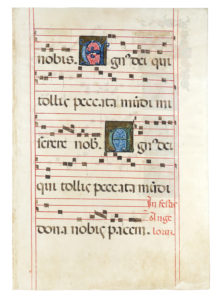 nobis. Agnꝰ dei qui
tollis peccata mūdi mi
serere nob̄. Agnꝰ dei
qui tollis peccata mūdi
dona nobis pacem.
In festis